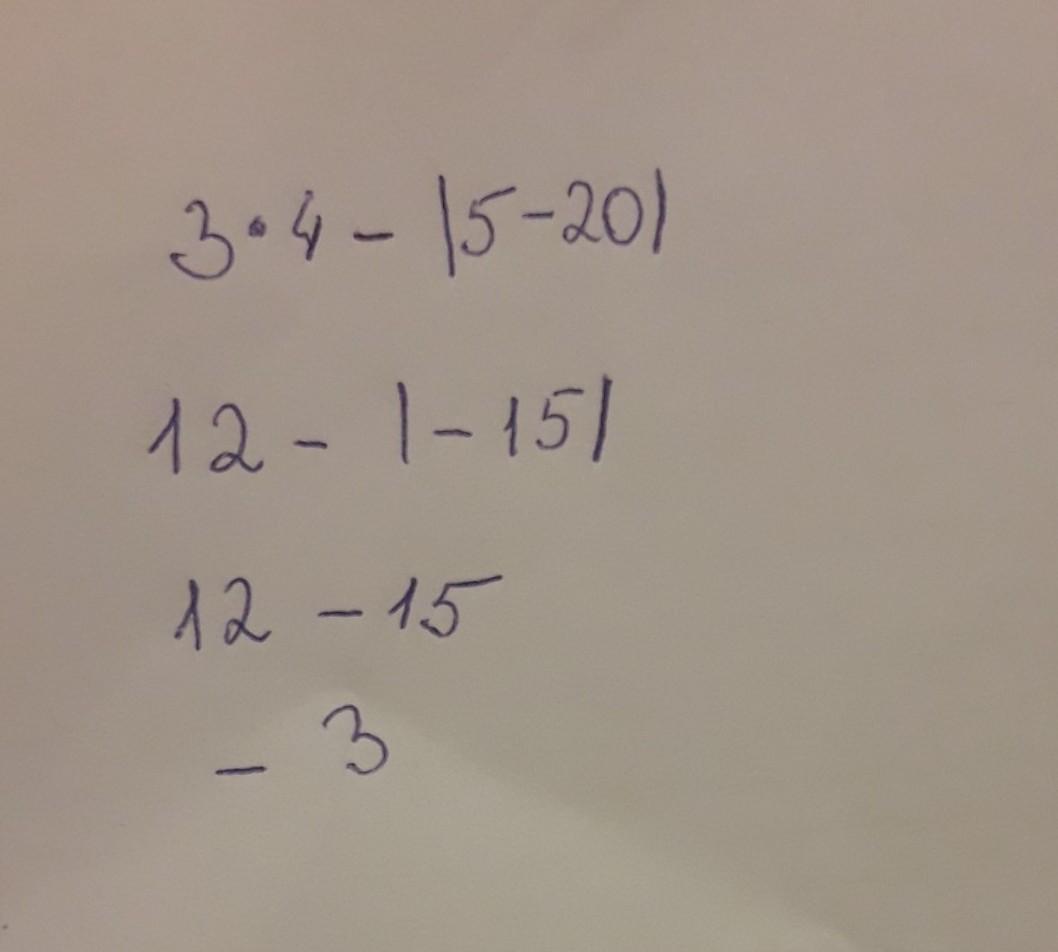 3·4 - |5-20|
12 - |-15|
12 - 15
- 3